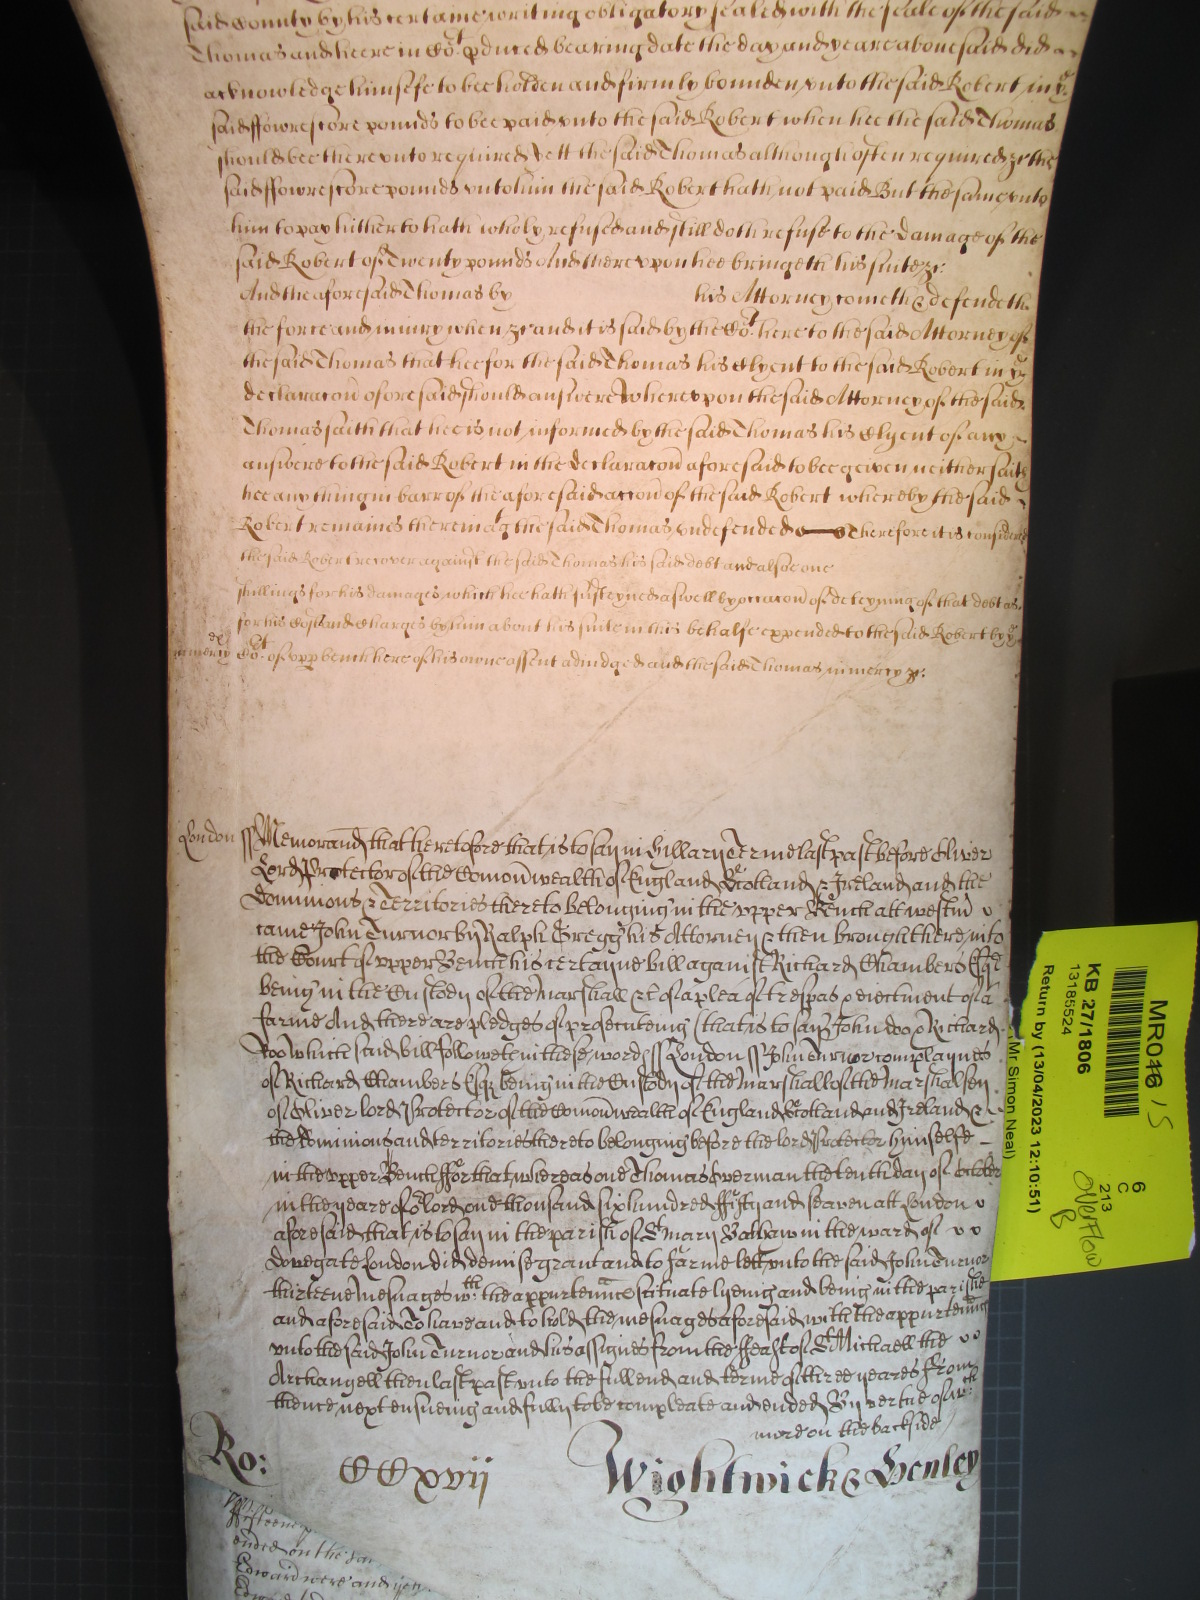 said County by his certaine writing obligatory sealed with the seale of the said
Thomas and heere in Cot. pduced bearing date the day and yeare above said did
acknowledge himselfe to bee holden and firmly bounden unto the said Robert in ye
said ffowrescore pounds to bee paid unto the said Robert when hee the said Thomas
should bee thereunto required Yett the said Thomas although often required &c the
said ffowrescore pounds unto him the said Robert hath not paid But the same unto
him to pay hitherto hath wholy refused and still doth refuse to the damage of the
said Robert of Twenty pounds And thereupon hee bringeth his suite &c.
And the aforesaid Thomas by his Attorney cometh & defendeth
the force and iniury when &c and it is said by the Cot. here to the said Attorney of
the said Thomas that hee for the said Thomas his Clyent to the said Robert in ye
declaracon aforesaid should answere Whereupon the said Attorney of the said
Thomas saith that hee is not informed by the said Thomas his Clyent of any
answere to the said Robert in the declaracon aforesaid to bee geiven neither saith
hee any thing in barr of the aforesaid accon of the said Robert whereby the said
Robert remaines therein agt the said Thomas undefended Therefore it is considered
the said Robert recover against the said Thomas his said debt and alsoe one
shillings for his damages which hee hath susteyned aswell by occacon of deteyning of that debt as
for his Costs and Charges by him about his suite in this behalfe expended to the said Robert by ye
in mercy Cot. of upp bench here of his owne assent adiudged and the said Thomas in mercy &c.
London ss Memorand that heretofore that is to say in Hillary Terme last past before Oliver
Lord Protector of the Comonwealth of England Scotland & Ireland and the
Dominions & Territories thereto belonging in the upper Bench att Westm
came John Turnor by Ralph Gregg his Attorney & then brought here into
the Court of upper Bench his certayne bill against Richard Chambers Esqr
being in the Custody of the Marshall &c of a plea of trespas & eiectment of a
farme And there are pledges of prosecuteing (that is to say) John doo & Richard
roo which said bill followeth in these words ss London ss John Turnor complaynes
of Richard Chambers Esqr being in the Custody of the Marshall of the Marshalsey
of Oliver lord Protector of the Comonwealth of England Scotland and Ireland &
the dominions and territories thereto belonging before the lord Protector himselfe
in the upper Bench ffor that whereas one Thomas Overman the tenth day of October
in the yeare of or lord one thousand six hundred ffifty and seaven att London
aforesaid that is to say in the parish of St Mary Bothaw in the ward of
dowgate London did demise grant and to farme lett unto the said John Turnor
thirteene Mesuages wth. the appurtennces scituate lyeing and being in the parishe
and aforesaid To have and to hold the mesuages aforesaid with the appurtennces
unto the said John Turnor and his assignes from the ffeast of St Michaell the
Archangell then last past unto the full end and terme of three yeares from
thence next ensueing and fully to be compleate and ended By vertue of wch
more on the backside
Ro: CCxvij Wightwick & Henley
ended on the
Edward were and
MR046 15
KB 27/1806
13185524
Return by (13/04/2023 12:10:51)
Mr Simon Neal)
6
C
213
Overflow
B